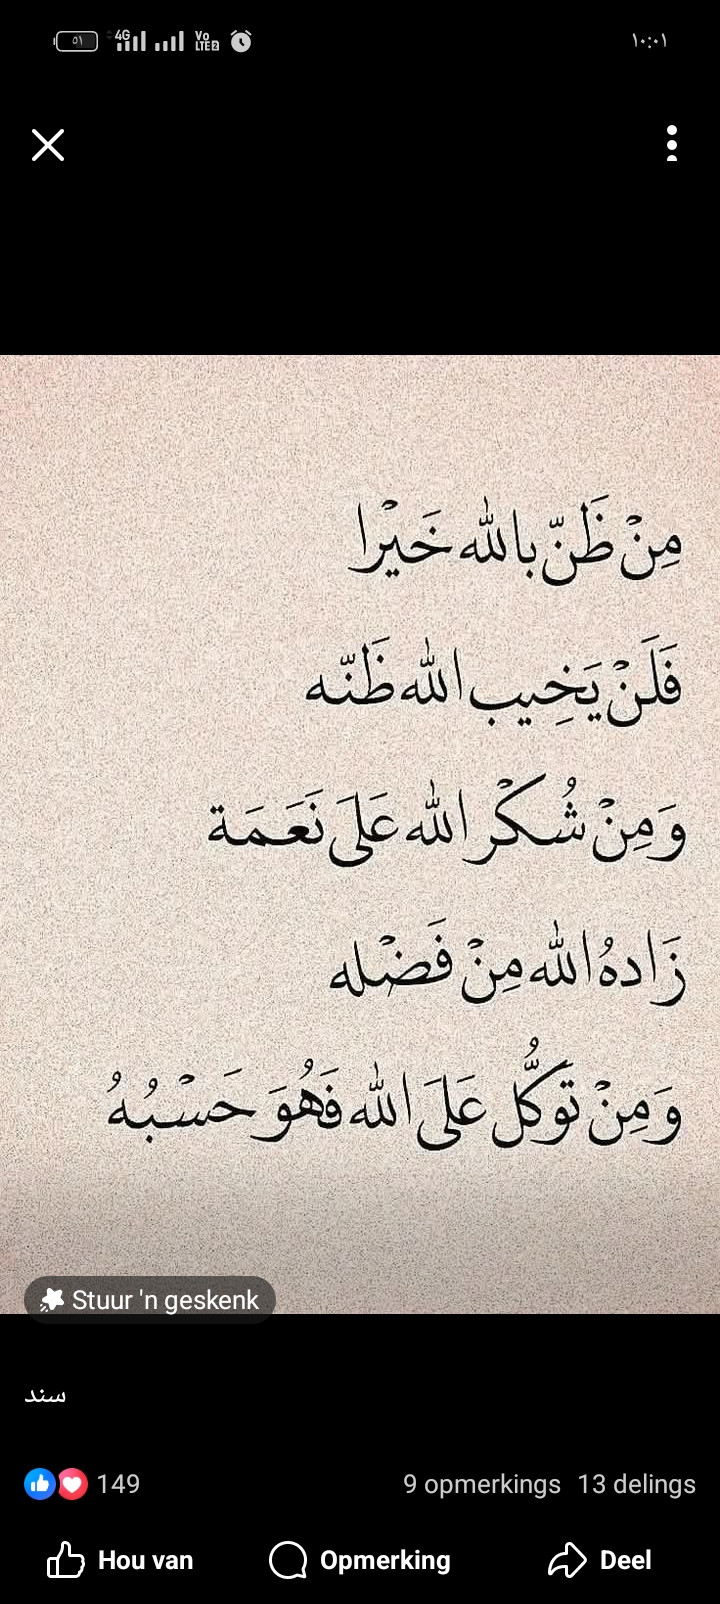 ٥١ 4G Vo LTE2 ١٠:٠١
مِنْ ظَنّ بالله خَيْرا
فَلَنْ يَخِيب الله ظَنّه
وَمِنْ شُكْر الله عَلَى نَعَمَة
زَادهُ الله مِنْ فَضْله
وَمِنْ تَوكُّل عَلَى الله فَهُوَ حَسْبُهُ
Stuur 'n geskenk
سند
149 9 opmerkings 13 delings
Hou van Opmerking Deel